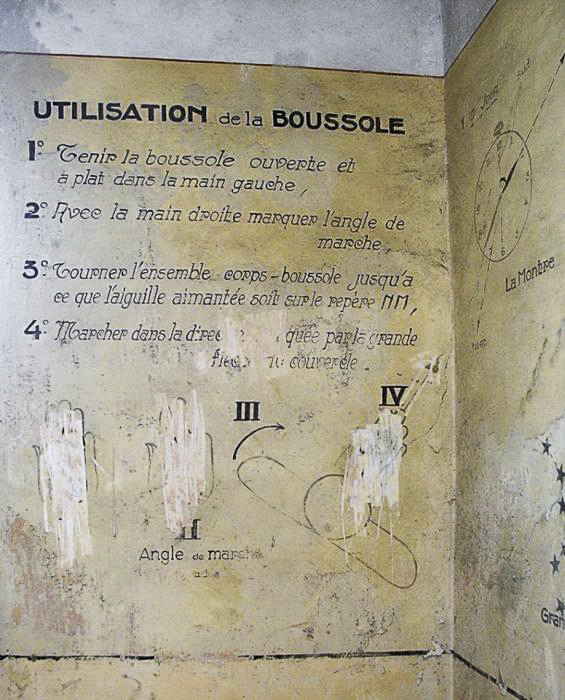 UTILISATION de la BOUSSOLE
1° Tenir la boussole ouverte et
à plat dans la main gauche,
2° Avec la main droite marquer l'angle de
marche,
3° Tourner l'ensemble corps-boussole jusqu'à
ce que l'aiguille aimantée soit sur le repère NM,
4° Marcher dans la par la grande
couvercle
III
IV
II
Angle de
Jour
Sud
12
6
La Montre